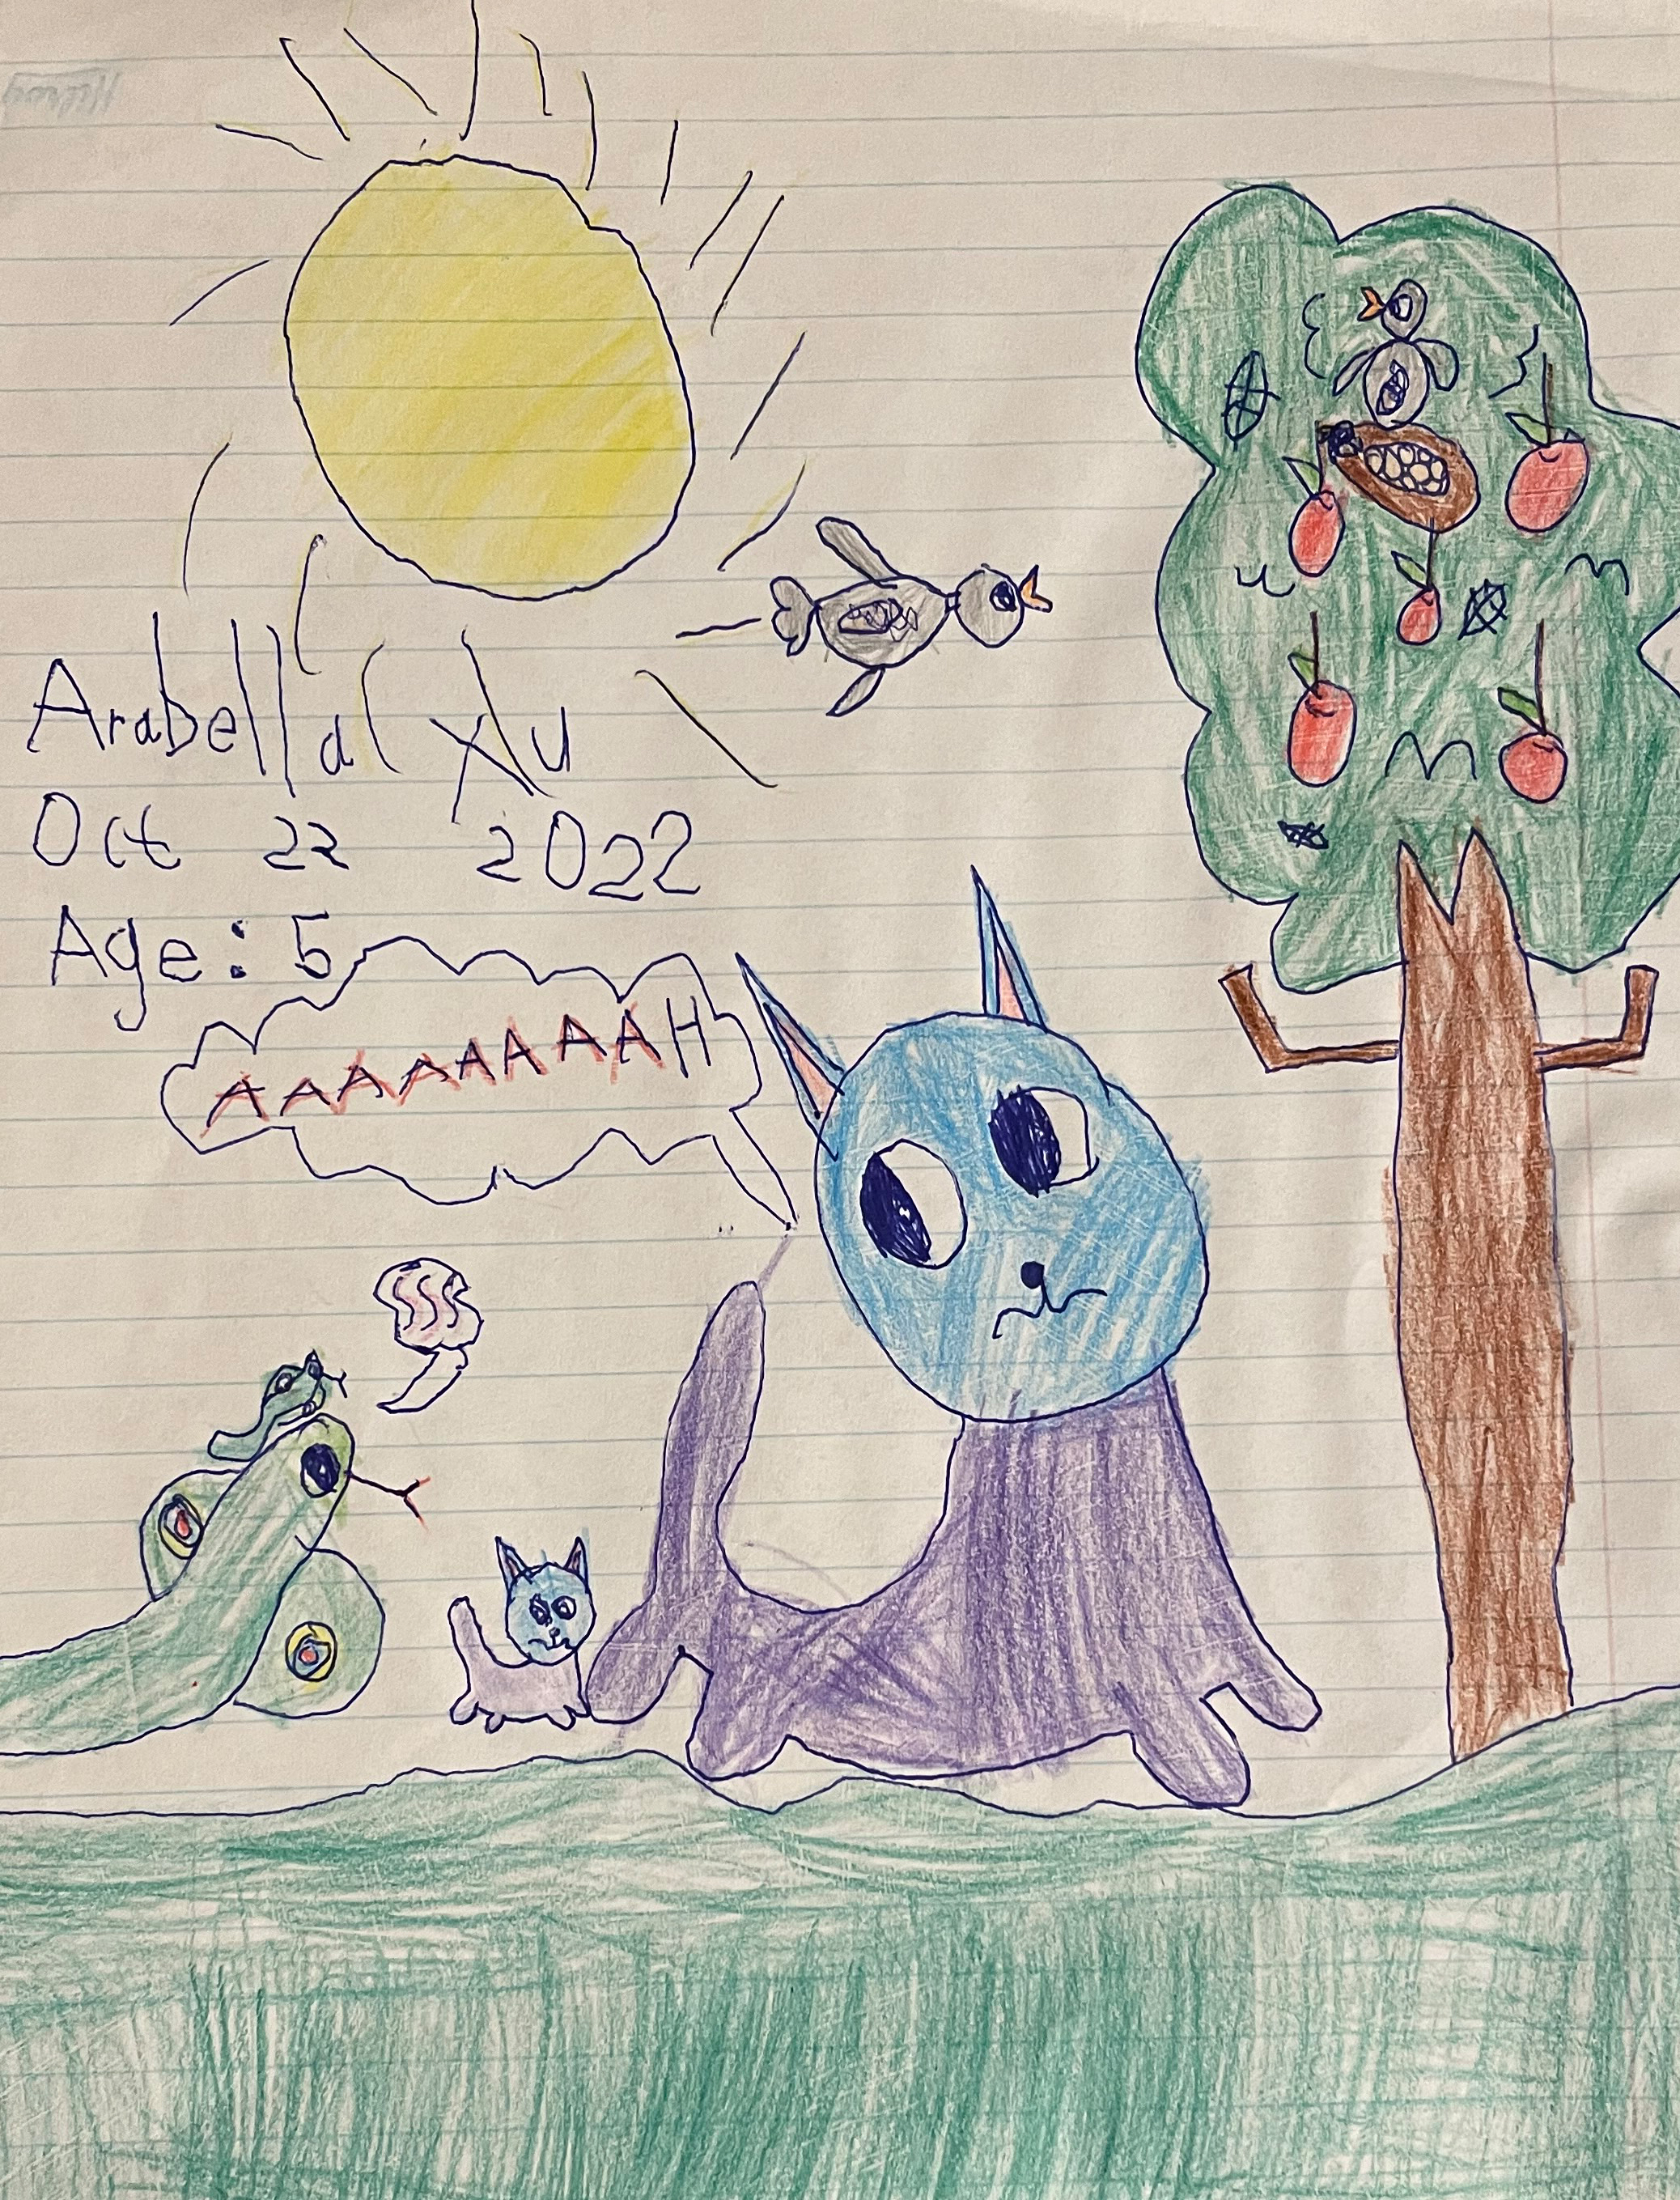 Arabella Xu
Oct 22 2022
Age: 5
AAAAAAAAH
SSS